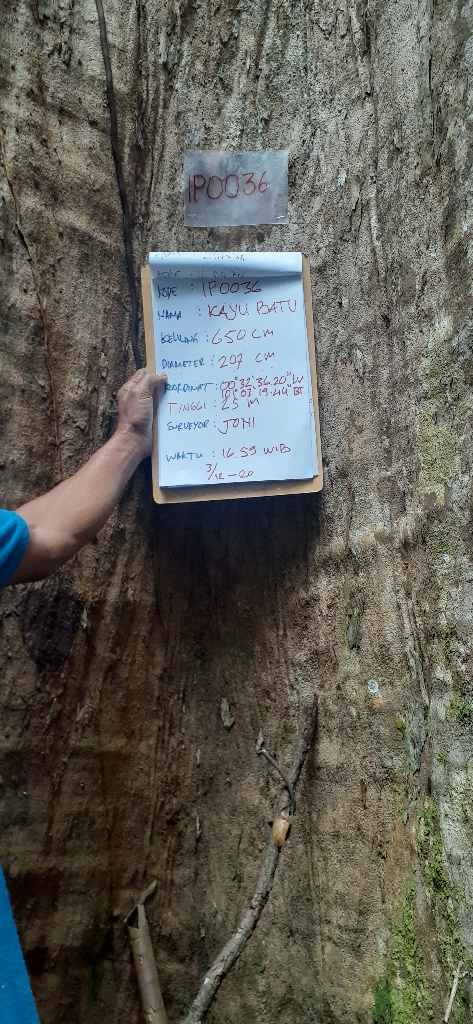 IP0036
KODE : IP0036
NAMA : KAYU BATU
KELILING : 650 CM
DIAMETER : 207 CM
KOORDINAT : 00° 32' 36.20" W
101° 03' 19.44" BT
TINGGI : 25 m
SURVEYOR : JONI
WAKTU : 16.59 WIB
3/12-20